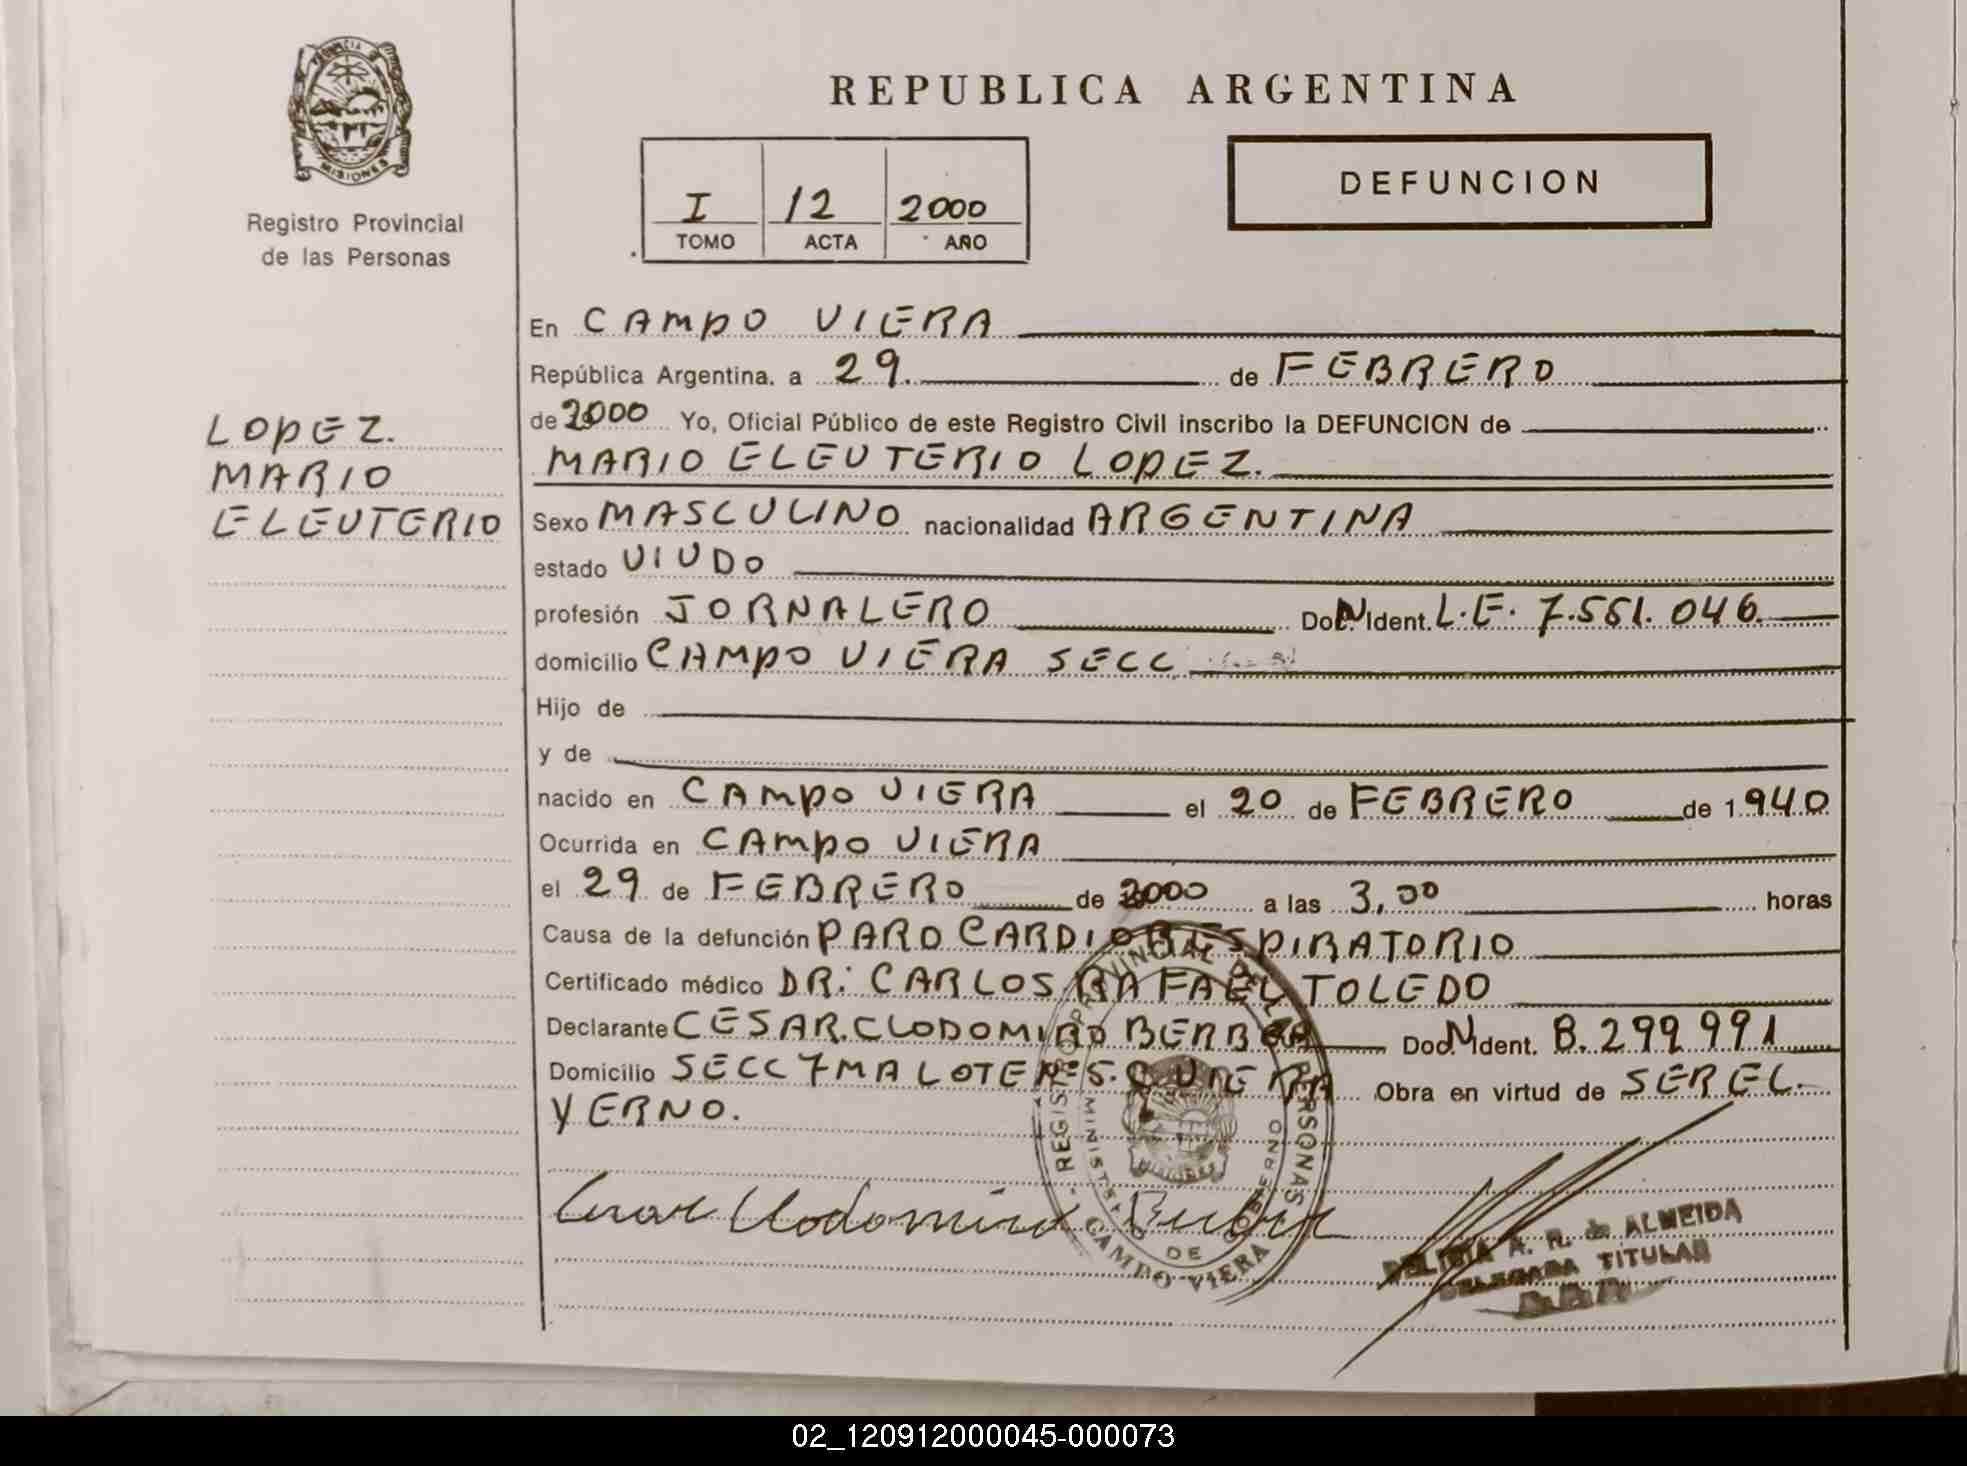 PROVINCIA DE
MISIONES
Registro Provincial
de las Personas
REPUBLICA ARGENTINA
I 12 2000
TOMO ACTA AÑO
DEFUNCION
LOPEZ.
MARIO
ELEUTERIO
En CAMPO VIERA
República Argentina, a 29. de FEBRERO
de 2000 Yo, Oficial Público de este Registro Civil inscribo la DEFUNCION de
MARIO ELEUTERIO LOPEZ.
Sexo MASCULINO nacionalidad ARGENTINA
estado VIUDO
profesión JORNALERO Doc. N Ident. L.E. 7.561.046
domicilio CAMPO VIERA SECC
Hijo de
y de
nacido en CAMPO VIERA el 20 de FEBRERO de 1940
Ocurrida en CAMPO VIERA
el 29 de FEBRERO de 2000 a las 3,00 horas
Causa de la defunción PARO CARDIORESPIRATORIO
Certificado médico DR: CARLOS RAFAEL TOLEDO
Declarante CESAR.CLODOMIRO Doc. N Ident. 8.299.991
Domicilio SECC 7MA LOTE C. VIERA Obra en virtud de SER EL.
YERNO.
REGISTRO PROVINCIAL DE LAS PERSONAS
MINISTERIO DE GOBIERNO
MISIONES
CAMPO VIERA
Cesar Clodomiro
A. R. de ALMEIDA
DELEGADA TITULAR
02_120912000045-000073